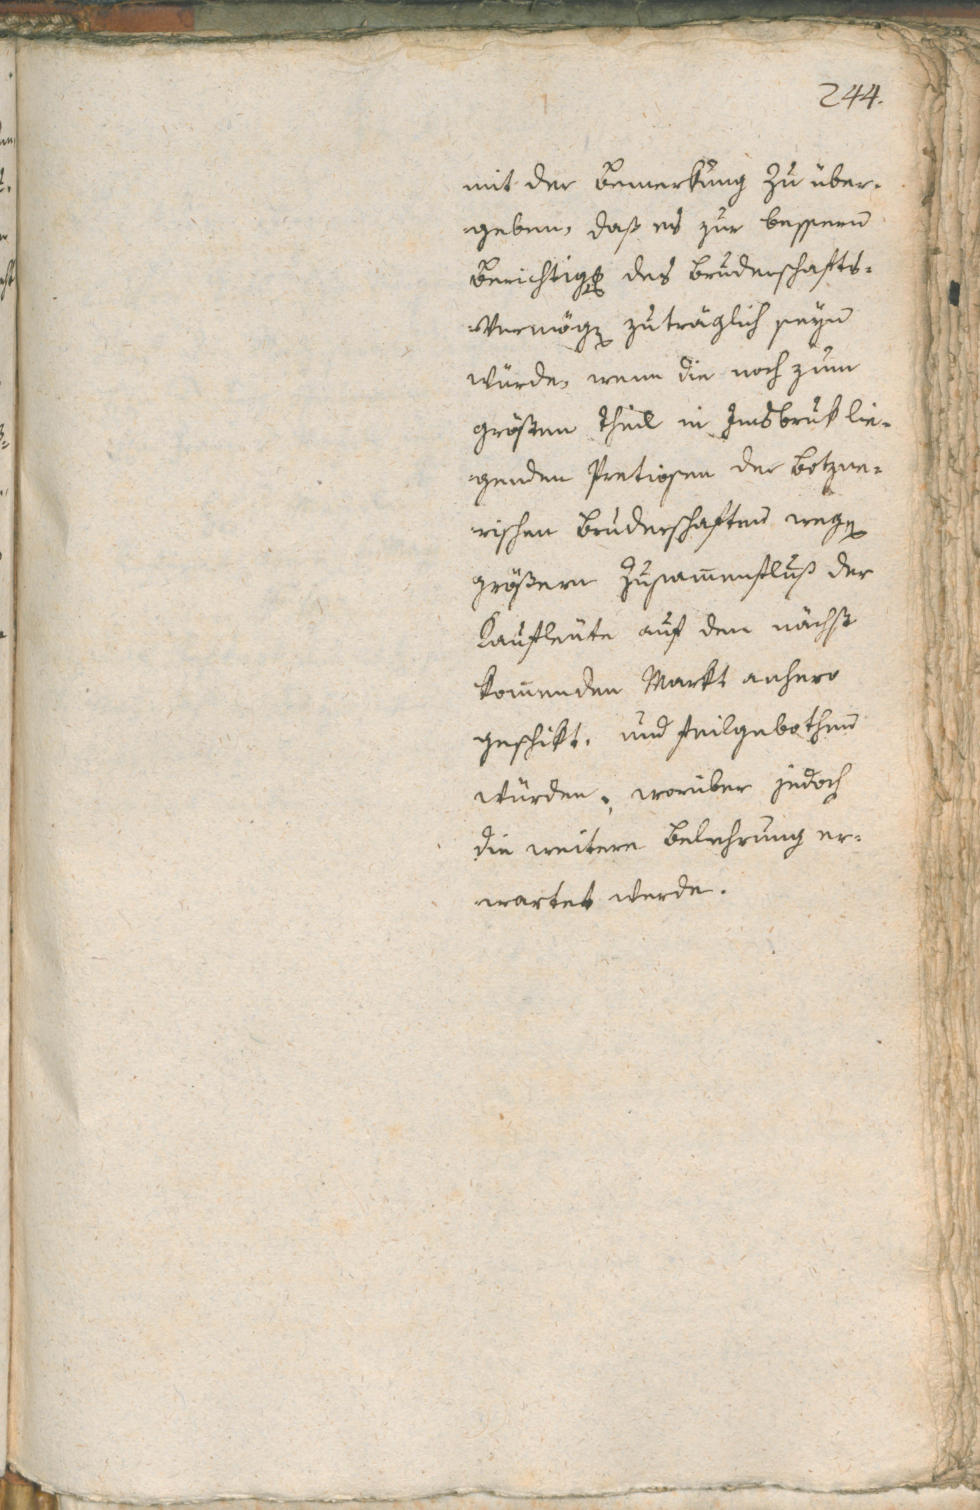 244.
mit der Bemerkung zu über-
geben, daß es zur bessern
Berichtigg des Bruderschafts-
Vermög zuträglich seyn
würde, wenn die noch zum
größten Theil in Insbruk lie-
genden Pretiosen der Botzne-
rischen Bruderschaften weg
größern Zusam̅enfluß der
Kaufleute auf den nächst
kom̅enden Markt anhero
geschikt, und feilgebothen
würden, worüber jedoch
die weitere Belehrung er-
wartet werde.